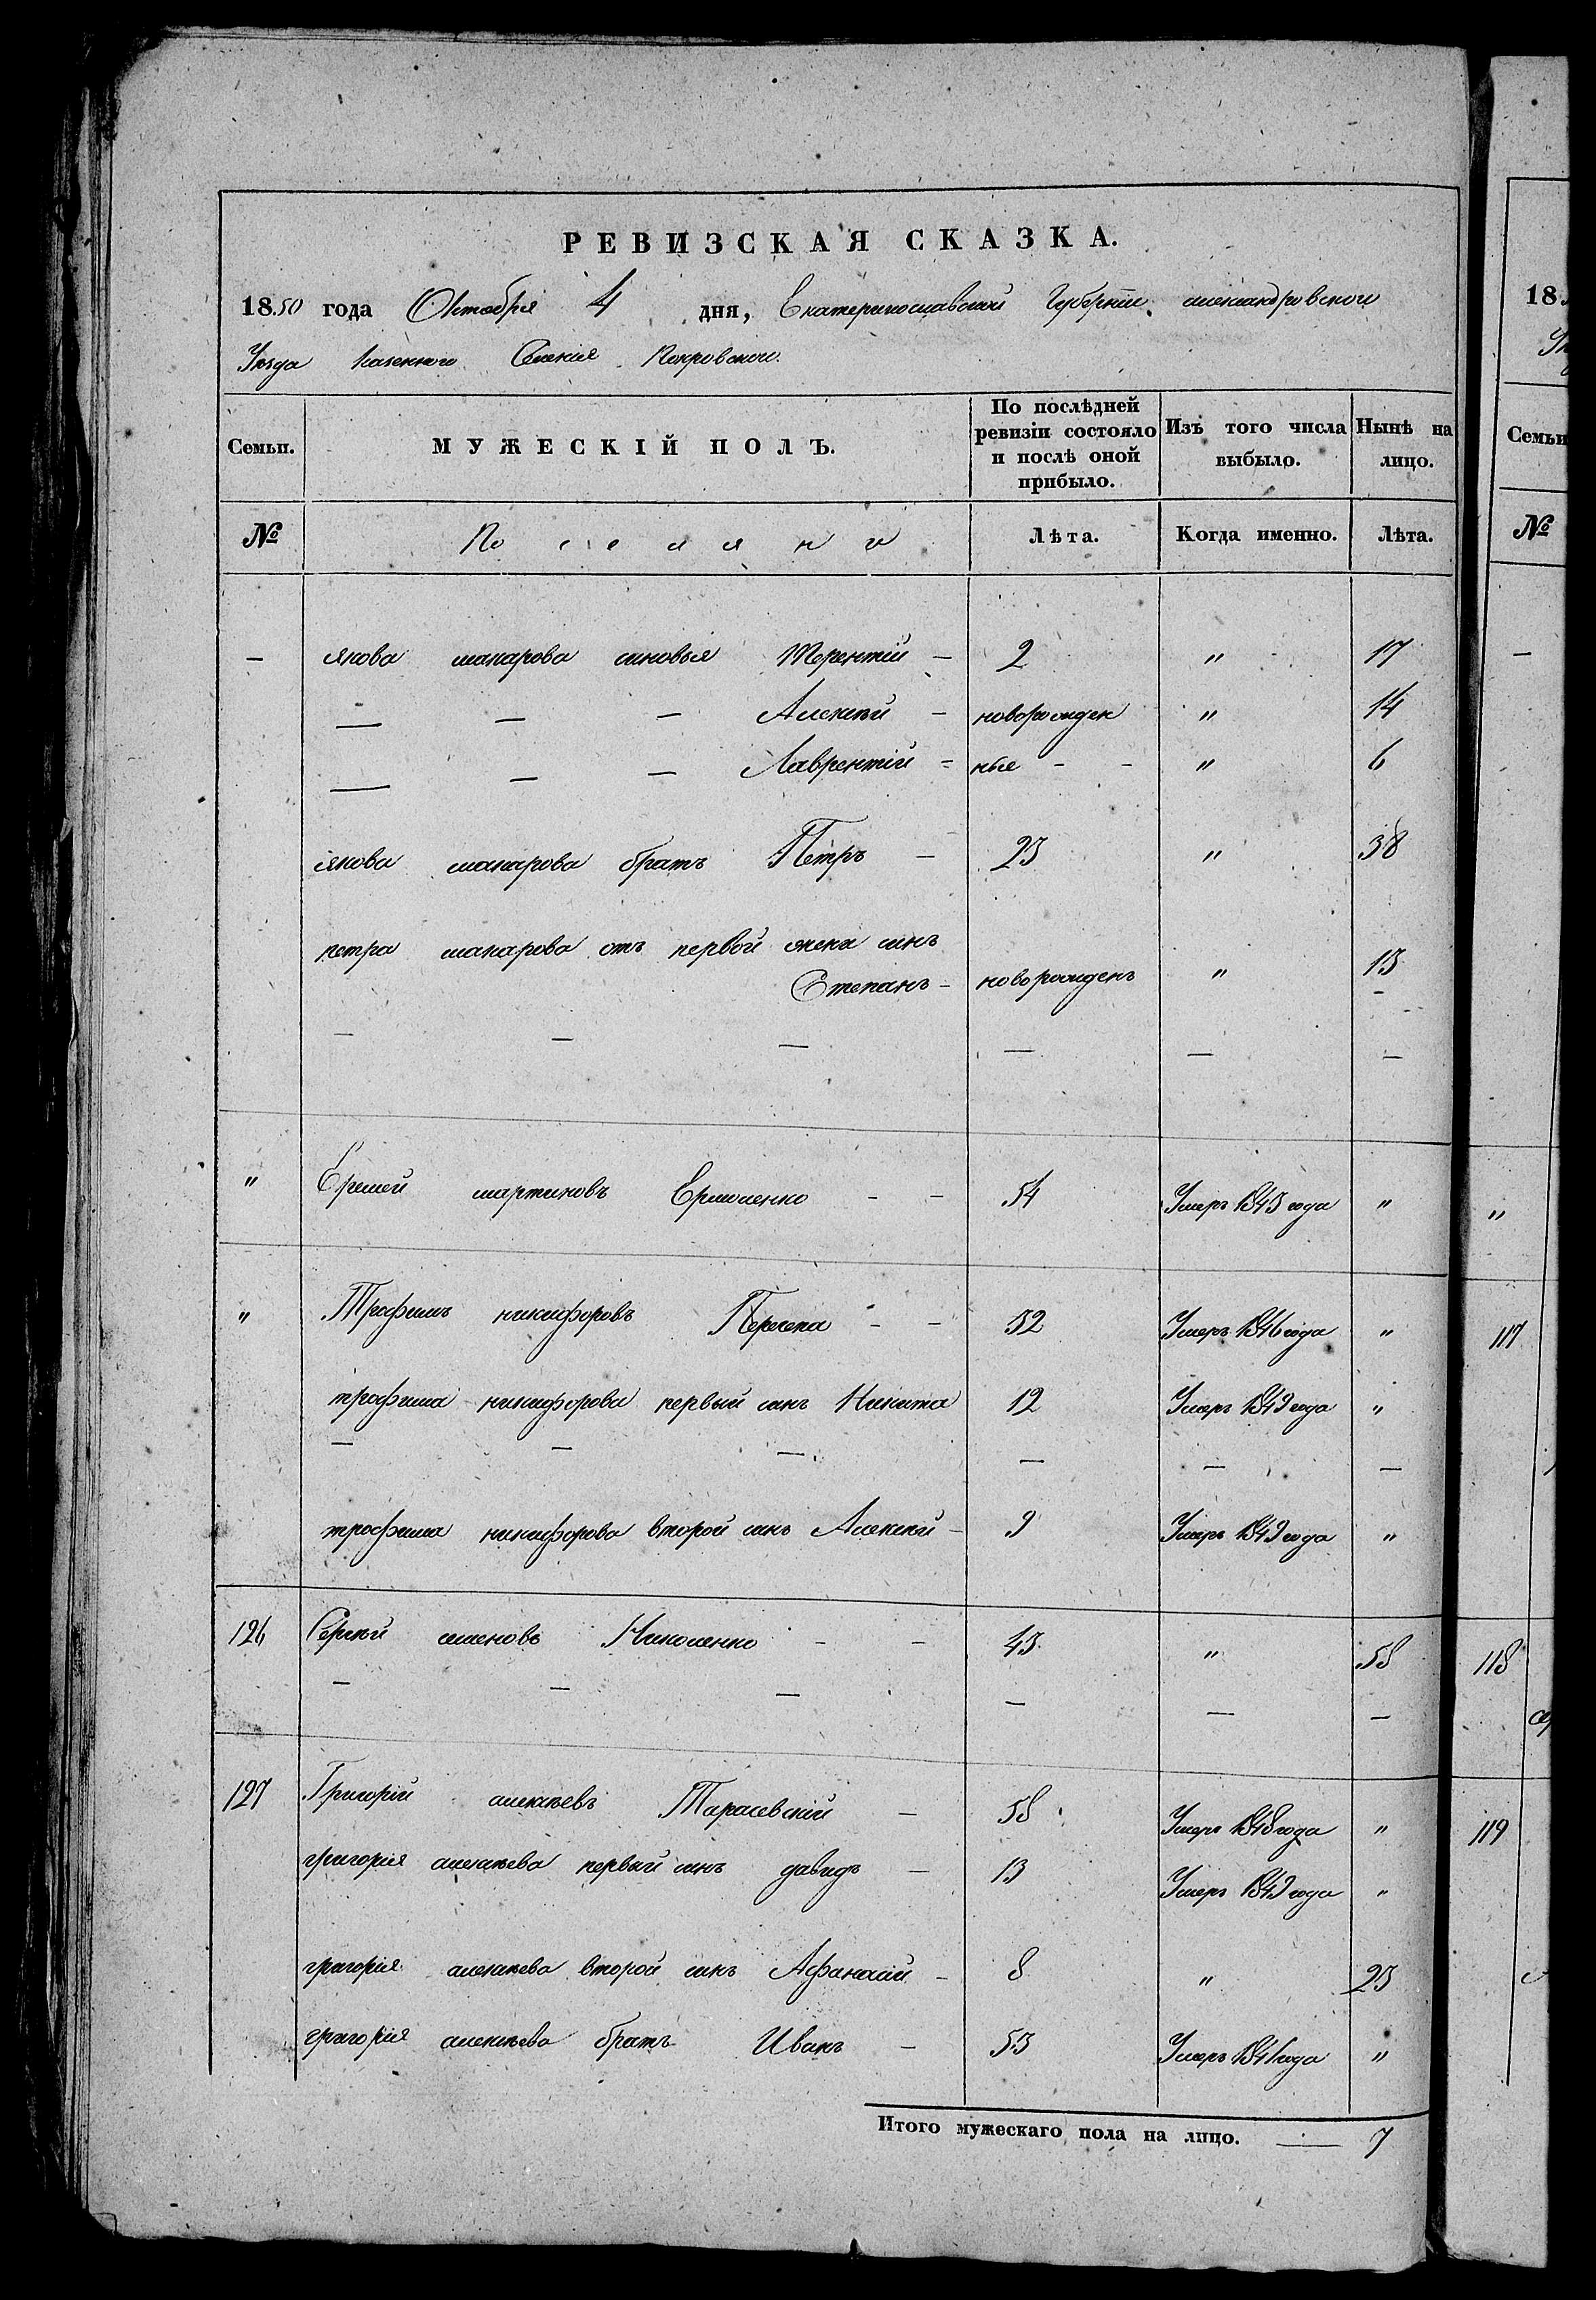 РЕВИЗСКАЯ СКАЗКА.
1850 года Октября 4 дня, Екатеринославской Губернии александровскаго
Уезда Казенного Селения Покровского.
Семьи. МУЖЕСКІЙ ПОЛЪ. По послѣдней ревизіи состояло и послѣ оной прибыло. Изъ того числа выбыло. Нынѣ на лицо.
№ Поселяни Лѣта. Когда именно. Лѣта.
— якова макарова сыновья Терентій — 2 " 17
— — — Алексѣй — новорожден " 14
— — — Лаврентій = ные - - " 6
якова макарова братъ Петръ — 23 " 38
петра макарова отъ первой жены сынъ
Степанъ — новорожденъ " 13
— — — — — —
" Еремей мартиновъ Ермоленко - - 54 Умеръ 1843 года "
" Трофимъ никифоровъ - - 52 Умеръ 1846 года "
трофима никифорова первый сынъ Никита 12 Умеръ 1849 года "
— — — — — —
трофима никифорова второй сынъ Алексѣй — 9 Умеръ 1849 года "
126 Сергѣй семеновъ Николенко - - 43 " 58
— — — — — —
127 Григорій алексѣевъ Тарасевскій — 58 Умеръ 1848 года "
григорія алексѣева первый сынъ давидъ — 13 Умеръ 1849 года "
григорія алексѣева второй сынъ Афанасій — 8 " 23
григорія алексѣева братъ Иванъ — 53 Умеръ 1841 года "
Итого мужескаго пола на лицо. — 7
18
Семьи
№
—
"
117
118
119